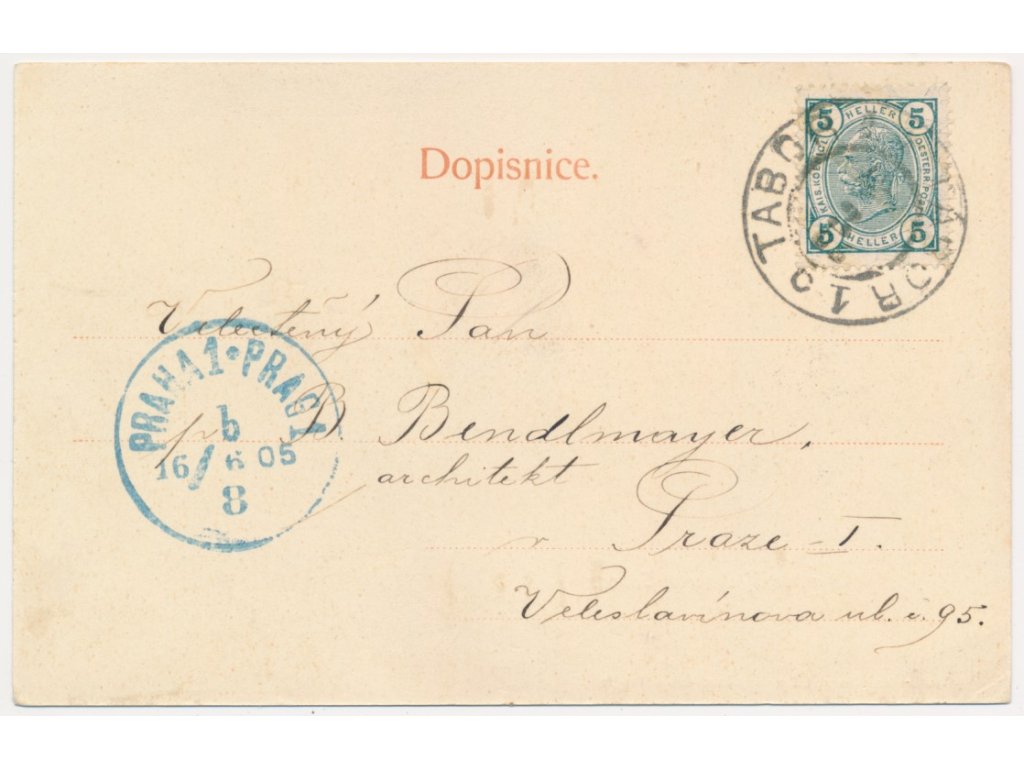 Dopisnice.
5 HELLER 5
KAIS. KOENIGL. OESTERR. POST
5 HELLER 5
TABOR TÁBOR 1
Velectěný Pan
PRAHA 1 • PRAG 1
b
16/6 05
8
p. B. Bendlmayer,
architekt
v Praze - I.
Veleslavínova ul. č. 95.